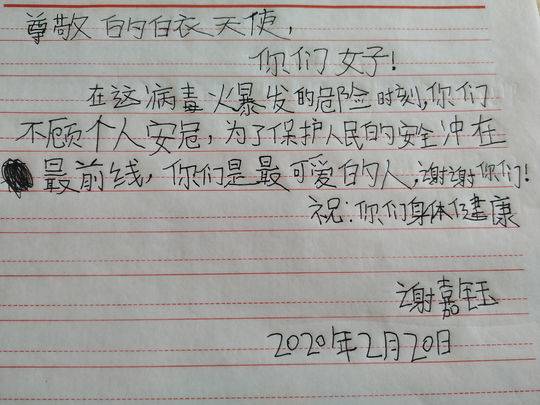 尊敬的白衣天使,
你们好!
在这病毒火暴发的危险时刻,你们
不顾个人安危,为了保护人民的安全冲在
最前线,你们是最可爱的人,谢谢你们!
祝:你们身体健康
谢嘉钰
2020年2月20日